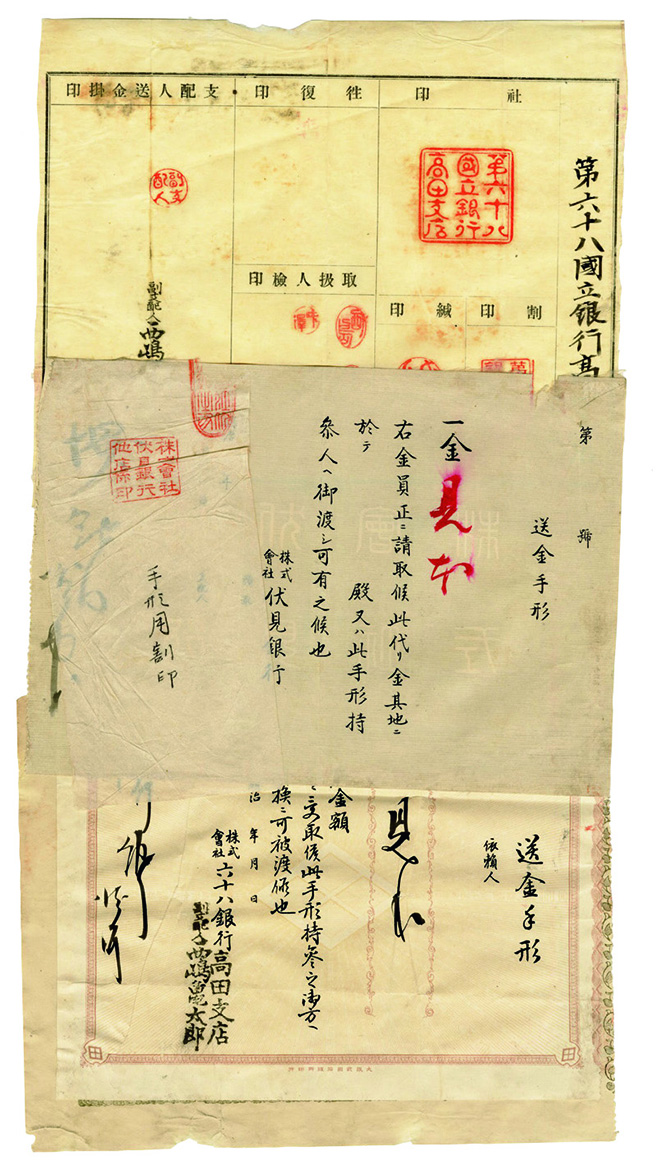 第六十八國立銀行高
社印
第六十八
國立銀行
高田支店
割印
緘印
徃復印
取扱人檢印
支配人送金掛印
副支
配人
副支配人西嶋
第 號
送金手形
一金見本
右金員正ニ請取候此代リ金其地ニ
於テ 殿又ハ此手形持
參人ヘ御渡シ可有之候也
株式會社伏見銀行
株式會社
伏見銀行
他店係印
手形用割印
送金手形
依賴人
見本
金額
取候此手形持參之御方ヘ
換ニ可被渡候也
治 年 月 日
株式會社六十八銀行高田支店
副支配人西嶋亀太郎